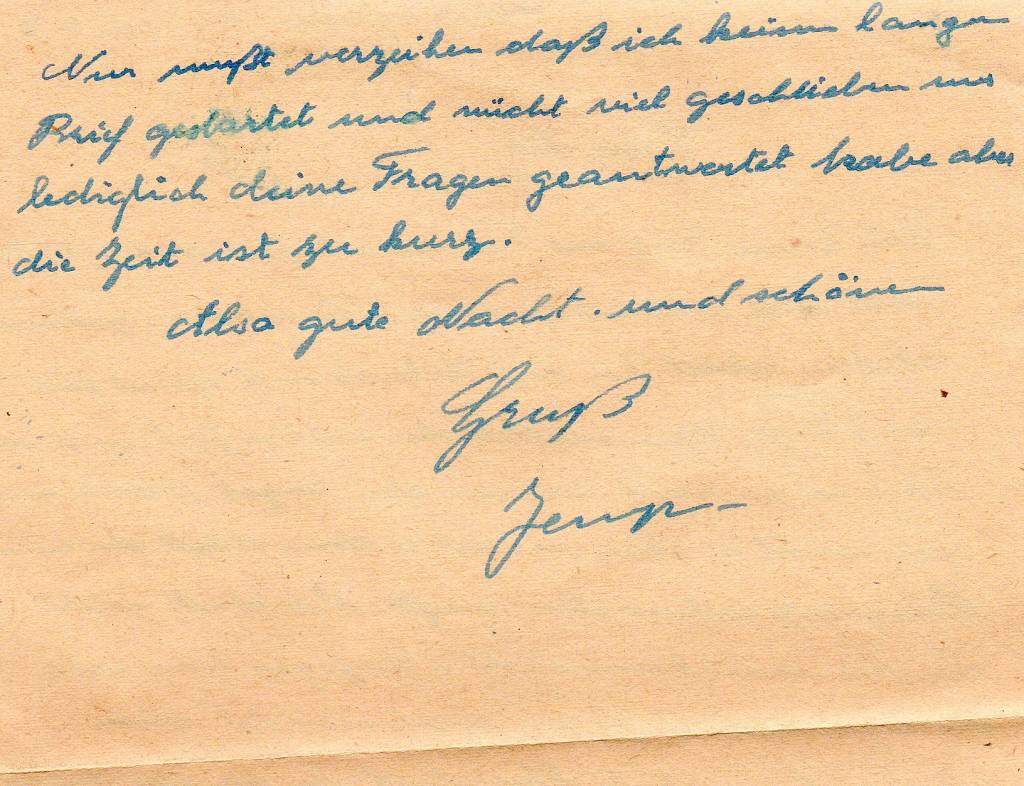 Nur mußt verzeihen daß ich keinen langen
Brief gestartet und nicht viel geschrieben nur
lediglich deine Fragen geantwortet habe aber
die Zeit ist zu kurz.
Also gute Nacht. und schönen
Gruß